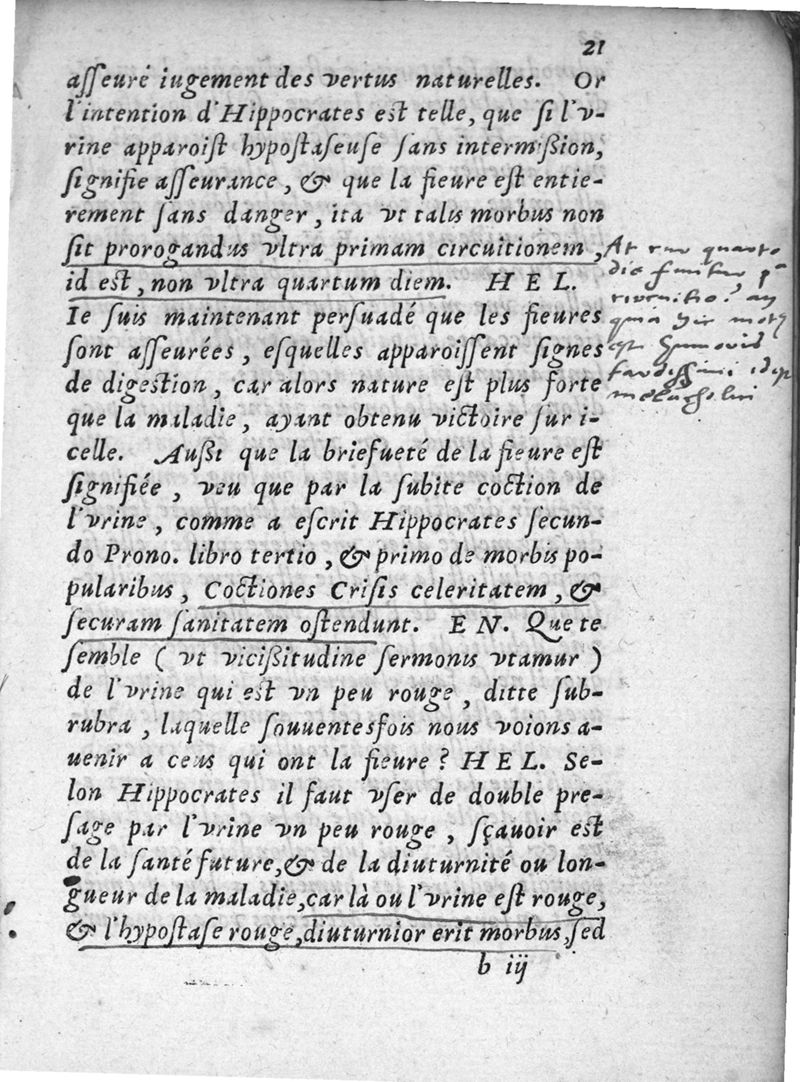 21
asseuré iugement des vertus naturelles. Or
l'intention d'Hippocrates est telle, que si l'v-
rine apparoist hypostaseuse sans intermißion,
signifie asseurance, & que la fieure est entie-
rement sans danger, ita vt talis morbus non
sit prorogandus vltra primam circuitionem,
id est, non vltra quartum diem. HEL.
Ie suis maintenant persuadé que les fieures
sont asseurées, esquelles apparoissent signes
de digestion, car alors nature est plus forte
que la maladie, ayant obtenu victoire sur i-
celle. Außi que la briefueté de la fieure est
signifiée, veu que par la subite coction de
l'vrine, comme a escrit Hippocrates secun-
do Prono. libro tertio, & primo de morbis po-
pularibus, Coctiones Crisis celeritatem, &
securam sanitatem ostendunt. EN. Que te
semble (vt vicißitudine sermonis vtamur)
de l'vrine qui est vn peu rouge, ditte sub-
rubra, laquelle souuentesfois nous voions a-
uenir a ceus qui ont la fieure? HEL. Se-
lon Hippocrates il faut vser de double pre-
sage par l'vrine vn peu rouge, sçauoir est
de la santé future, & de la diuturnité ou lon-
gueur de la maladie, car là ou l'vrine est rouge,
& l'hypostase rouge, diuturnior erit morbus, sed
b iij
At cur quarto
die
quia